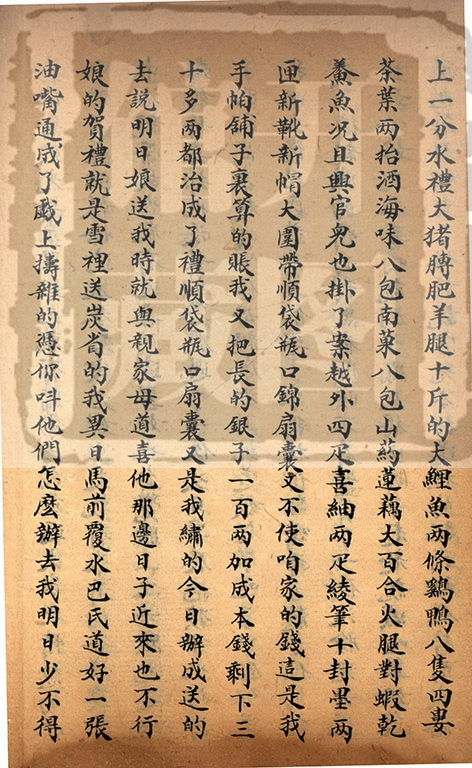 上一分水禮大猪膊肥羊腿十斤的大鯉魚兩條鷄鴨八隻四婁
茶葉两抬酒海味八包南菓八包山葯蓮藕大百合火腿對蝦乾
鯗魚况且興官兒也掛了案越外四疋喜紬两疋綾筆十封墨两
匣新靴新帽大圍帶順袋瓶口錦扇囊又不使咱家的錢這是我
手帕舖子裏算的賬我又把長的銀子一百两加成本錢剩下三
十多两都治成了禮順袋瓶口扇囊又是我繡的今日辦成送的
去說明日娘送我時就與親家母道喜他那邊日子近來也不行
娘的賀禮就是雪裡送炭省的我異日馬前覆水巴氏道好一張
油嘴通成了戯上擣雜的憑你呌他們怎麽辦去我明日少不得